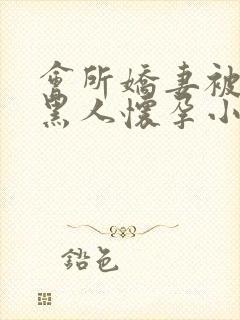 會所嬌妻被
黑人懷孕小
鉛色